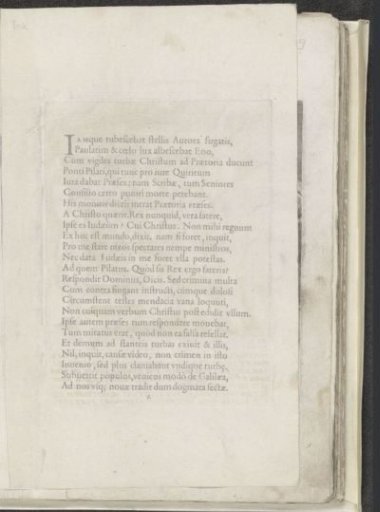 IAmque rubescebat stellis Aurora fugatis,
Paulatim & cœlo lux albescebat Eoo,
Cum vigiles turbæ Christum ad Prætoria ducunt
Ponti Pilati, qui tunc pro iure Quiritum
Iura dabat Præses: nam Scribæ, tum Seniores
Confisio certo puniri morte petebant.
His monitus dictis intrat Prætoria præses.
A Christo quærit, Rex nunquid, vera fatere,
Ipse es Iudæûm? Cui Christus. Non mihi regnum
Ex hoc est mundo, dixit, nam si foret, inquit,
Pro me stare meos spectares nempe ministros,
Nec data Iudæis in me foret vlla potestas.
Ad quem Pilatus. Quòd sis Rex ergo fateris?
Respondit Dominus, Dicis. Sed crimina multa
Cum contra fingant instructi, cumque dolosi
Circumstent testes mendacia vana loquuti,
Non cuiquam verbum Christus post edidit vllum.
Ipse autem præses tum respondere monebat,
Tum miratus erat, quod non ea falsa refellat.
Et demum ad stantes turbas exiuit & illis,
Nil, inquit, causæ video, non crimen in isto
Inuenio, sed plus clamabant vndique turbæ,
Subuertit populos, veniens modò de Galilæa,
Ad nos vsq; nouæ tradit dum dogmata sectæ.